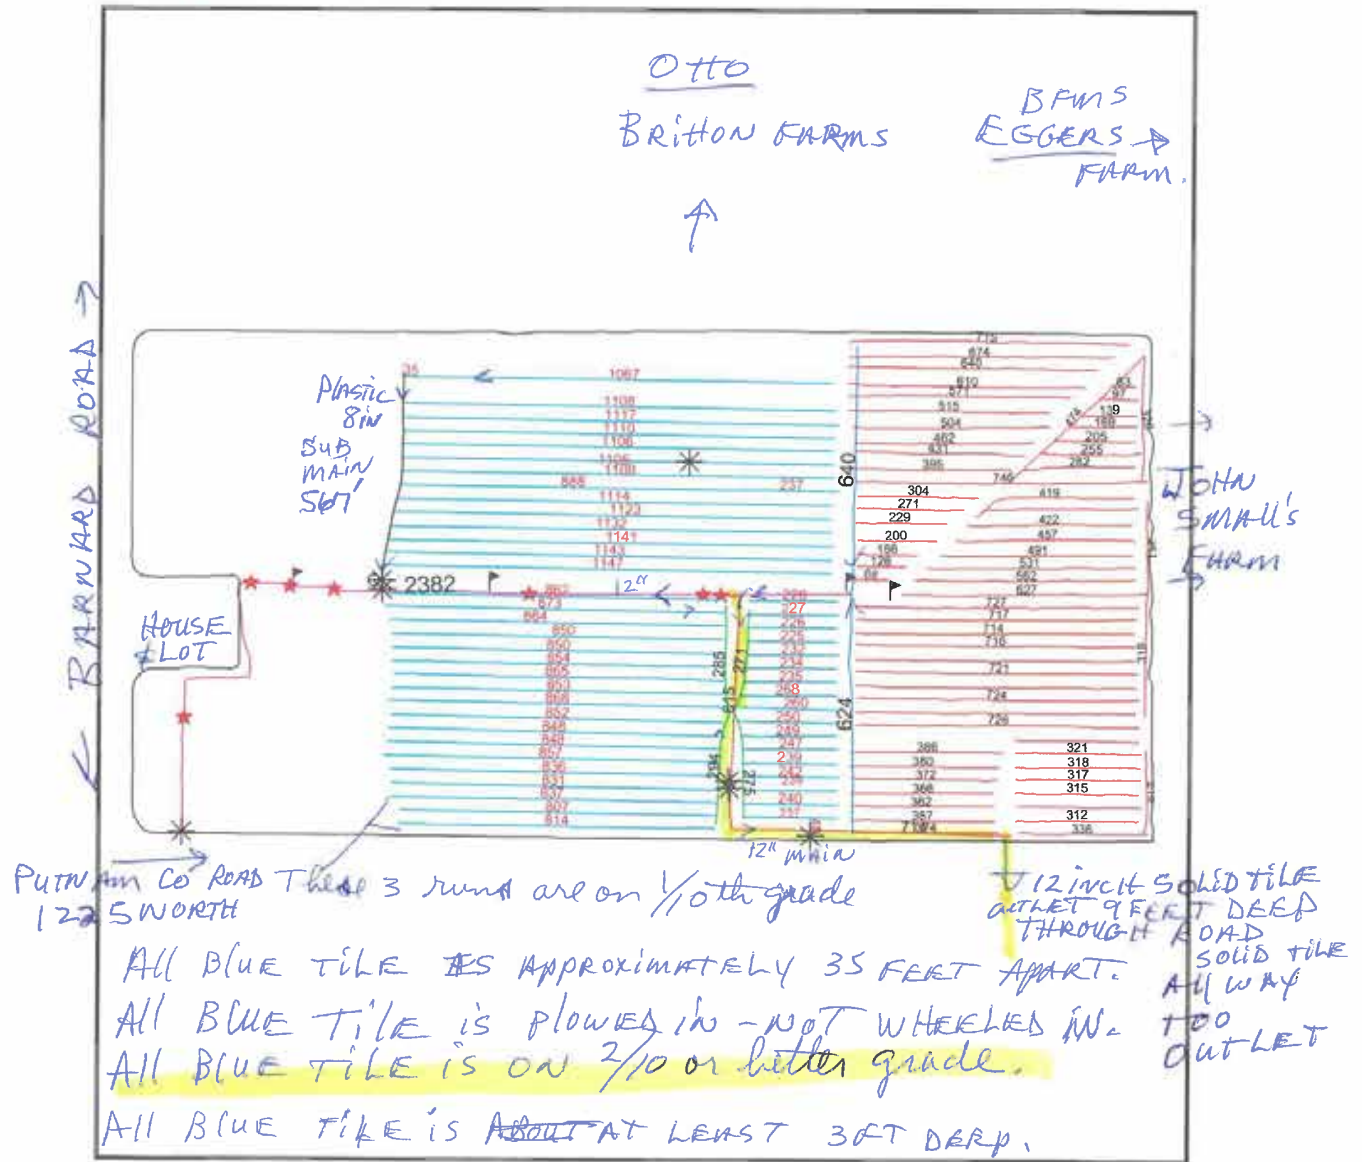 OTTO
BRITTON FARMS
BFMS
EGGERS →
FARM.
← BARNARD ROAD →
PLASTIC
8 IN
SUB
MAIN
567'
HOUSE
& LOT
JOHN
SMALL'S
FARM
35
1067
1108
1117
1110
1106
1106
1108
888
237
1114
1123
1132
1141
1143
1147
640
2382
673
664
850
850
854
865
853
868
852
848
848
857
836
831
837
807
814
285
271
615
294
275
27
226
225
233
234
235
268
260
250
249
247
239
242
240
237
624
715
674
640
610
571
515
504
462
431
395
304
271
229
200
166
126
83
97
139
169
205
255
282
474
746
419
422
457
491
531
562
627
727
717
714
716
721
724
726
318
386
380
372
366
362
357
321
318
317
315
312
336
12" MAIN
PUTNAM CO ROAD
1225 NORTH
These 3 runs are on 1/10th grade
12 INCH SOLID TILE
OUTLET 9 FEET DEEP
THROUGH ROAD
SOLID TILE
All WAY
TOO
OUTLET
All BlUE TILE IS APPROXIMATELY 35 FEET APART.
All BlUE TILE is PLOWED iN - NOT WHEELED iN.
All BlUE TILE is ON 2/10 or better grade.
All BlUE TILE is ABOUT AT LEAST 3 FT DEEP.